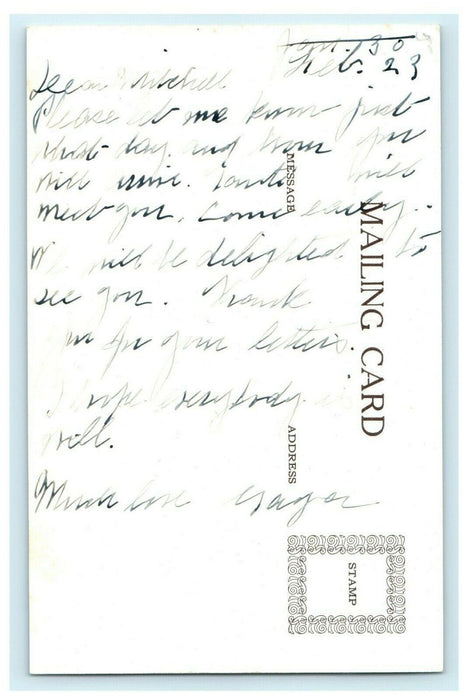 Jan. 30
Feb. 23
Dear Mitchell
Please let me know just
what day and hour you
will arrive. will
meet you. Come early.
We will be delighted to
see you. Thank
you for your letters.
I hope everybody is
well.
Much love
MESSAGE
MAILING CARD
ADDRESS
STAMP